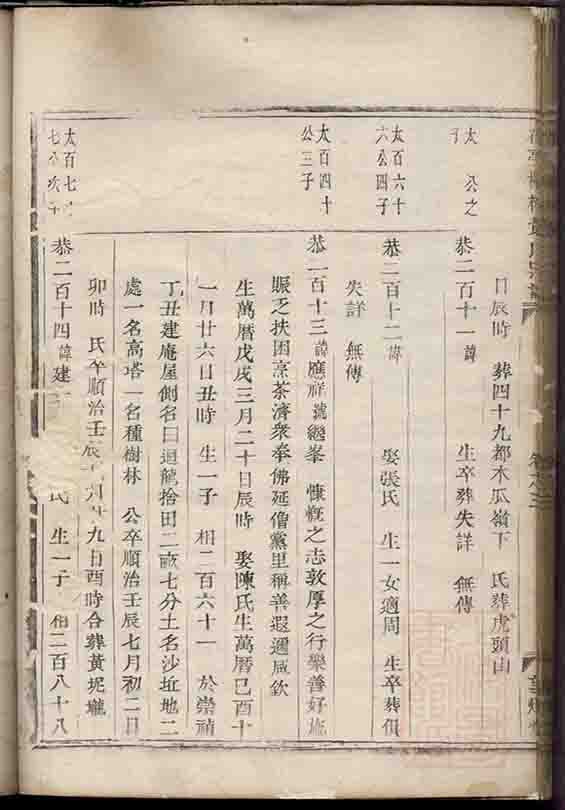 日辰時 葬四十九都木瓜嶺下 氏葬虎頭山
太 公之
子
恭二百十一諱 生卒葬失詳 無傳
太百六十
六公四子
恭二百十二諱 娶張氏 生一女適周 生卒葬俱
失詳 無傳
太百四十
公三子
恭二百十三諱應祥號繼峯 慷慨之志敦厚之行樂善好施
賑乏扶困烹茶濟衆奉佛延僧黨里稱善遐邇咸欽
生萬曆戊戌三月二十日辰時 娶陳氏生萬曆己酉十
一月廿六日丑時 生一子 相二百六十一 於崇禎
丁丑建庵屋創名曰迴龍捨田二畝七分土名沙坵地二
處一名高塔一名種樹林 公卒順治壬辰七月初二日
卯時 氏卒順治壬辰 月廿九日酉時合葬黃坭壠
太百七
七公次子
恭二百十四諱建 氏 生一子 相二百八十八